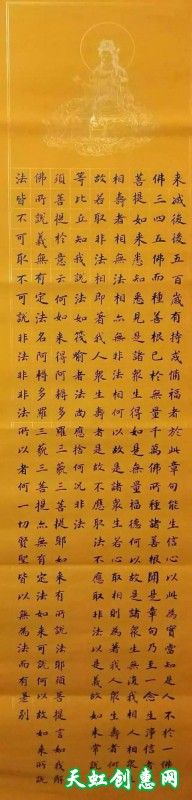 来滅後後五百歲有持戒脩福者於此章句能生信心以此為實當知是人不於一佛二
佛三四五佛而種善根已於無量千萬佛所種諸善根聞是章句乃至一念生淨信者須
菩提如来悉知悉見是諸衆生得如是無量福德何以故是諸衆生無復我相人相衆生
相壽者相無法相亦無非法相何以故是諸衆生若心取相則為著我人衆生壽者何以
故若取非法相即著我人衆生壽者是故不應取法不應取非法以是義故如来常說汝
等比丘知我說法如筏喻者法尚應捨何況非法
須菩提於意云何如来得阿耨多羅三藐三菩提耶如来有所說法耶須菩提言如我解
佛所說義無有定法名阿耨多羅三藐三菩提亦無有定法如来可說何以故如来所說
法皆不可取不可說非法非非法所以者何一切賢聖皆以無為法而有差别
天虹创惠网